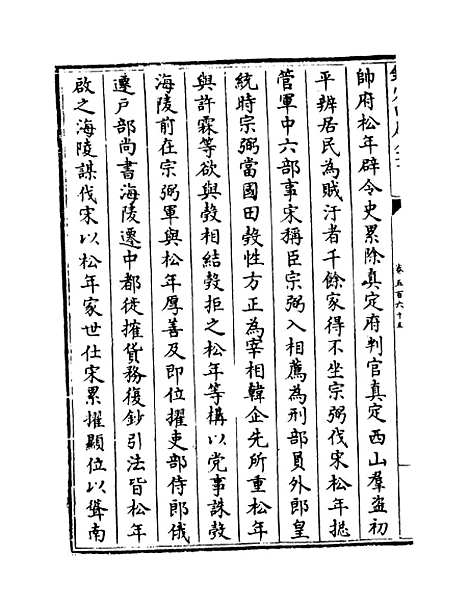 帥府松年辟令史累除真定府判官真定西山羣盗初
平辨居民為賊汙者千餘家得不坐宗弼伐宋松年摠
管軍中六部事宋稱臣宗弼入相薦為刑部員外郎皇
統時宗弼當國田瑴性方正為宰相韓企先所重松年
與許霖等欲與瑴相結瑴拒之松年等構以党事誅瑴
海陵前在宗弼軍與松年厚善及即位擢吏部侍郎俄
遷戸部尚書海陵遷中都徙搉貨務復鈔引法皆松年
啟之海陵謀伐宋以松年家世仕宋累擢顯位以聳南
卷五百六十五